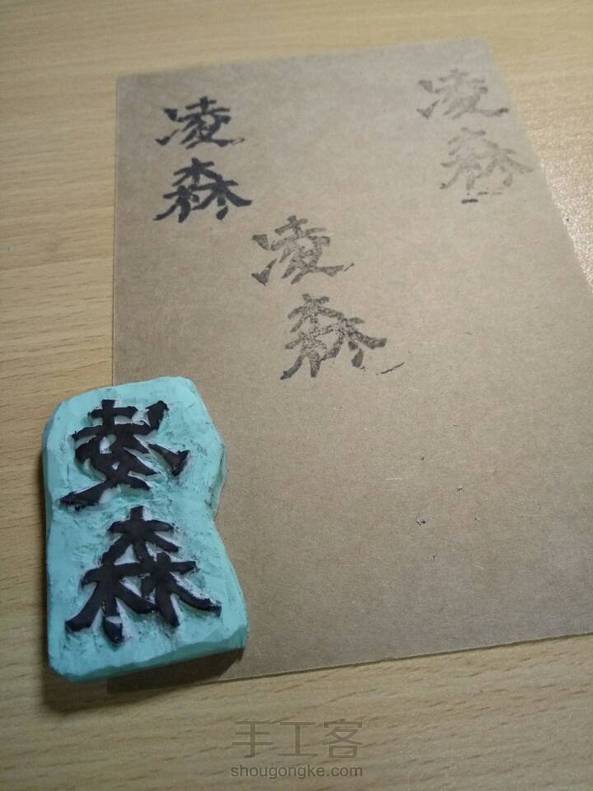 凌
森
凌
森
凌
森
凌
森
手工客
shougongke.com